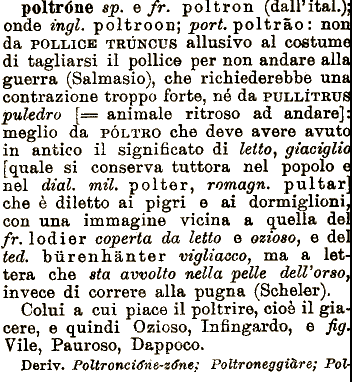 poltróne sp. e fr. poltron (dall'ital.);
onde ingl. poltroon; port. poltrão: non
da POLLICE TRÚNCUS allusivo al costume
di tagliarsi il pollice per non andare alla
guerra (Salmasio), che richiederebbe una
contrazione troppo forte, né da PULLÍTRUS
puledro [= animale ritroso ad andare]:
meglio da PÓLTRO che deve avere avuto
in antico il significato di letto, giaciglio
[quale si conserva tuttora nel popolo e
nel dial. mil. polter, romagn. pultar]
che è diletto ai pigri e ai dormiglioni,
con una immagine vicina a quella del
fr. lodier coperta da letto e ozioso, e del
ted. bürenhänter vigliacco, ma a let-
tera che sta avvolto nella pelle dell'orso,
invece di correre alla pugna (Scheler).
Colui a cui piace il poltrire, cioè il gia-
cere, e quindi Ozioso, Infingardo, e fig.
Vile, Pauroso, Dappoco.
Deriv. Poltronciόne-zóne; Poltroneggiàre; Pol-